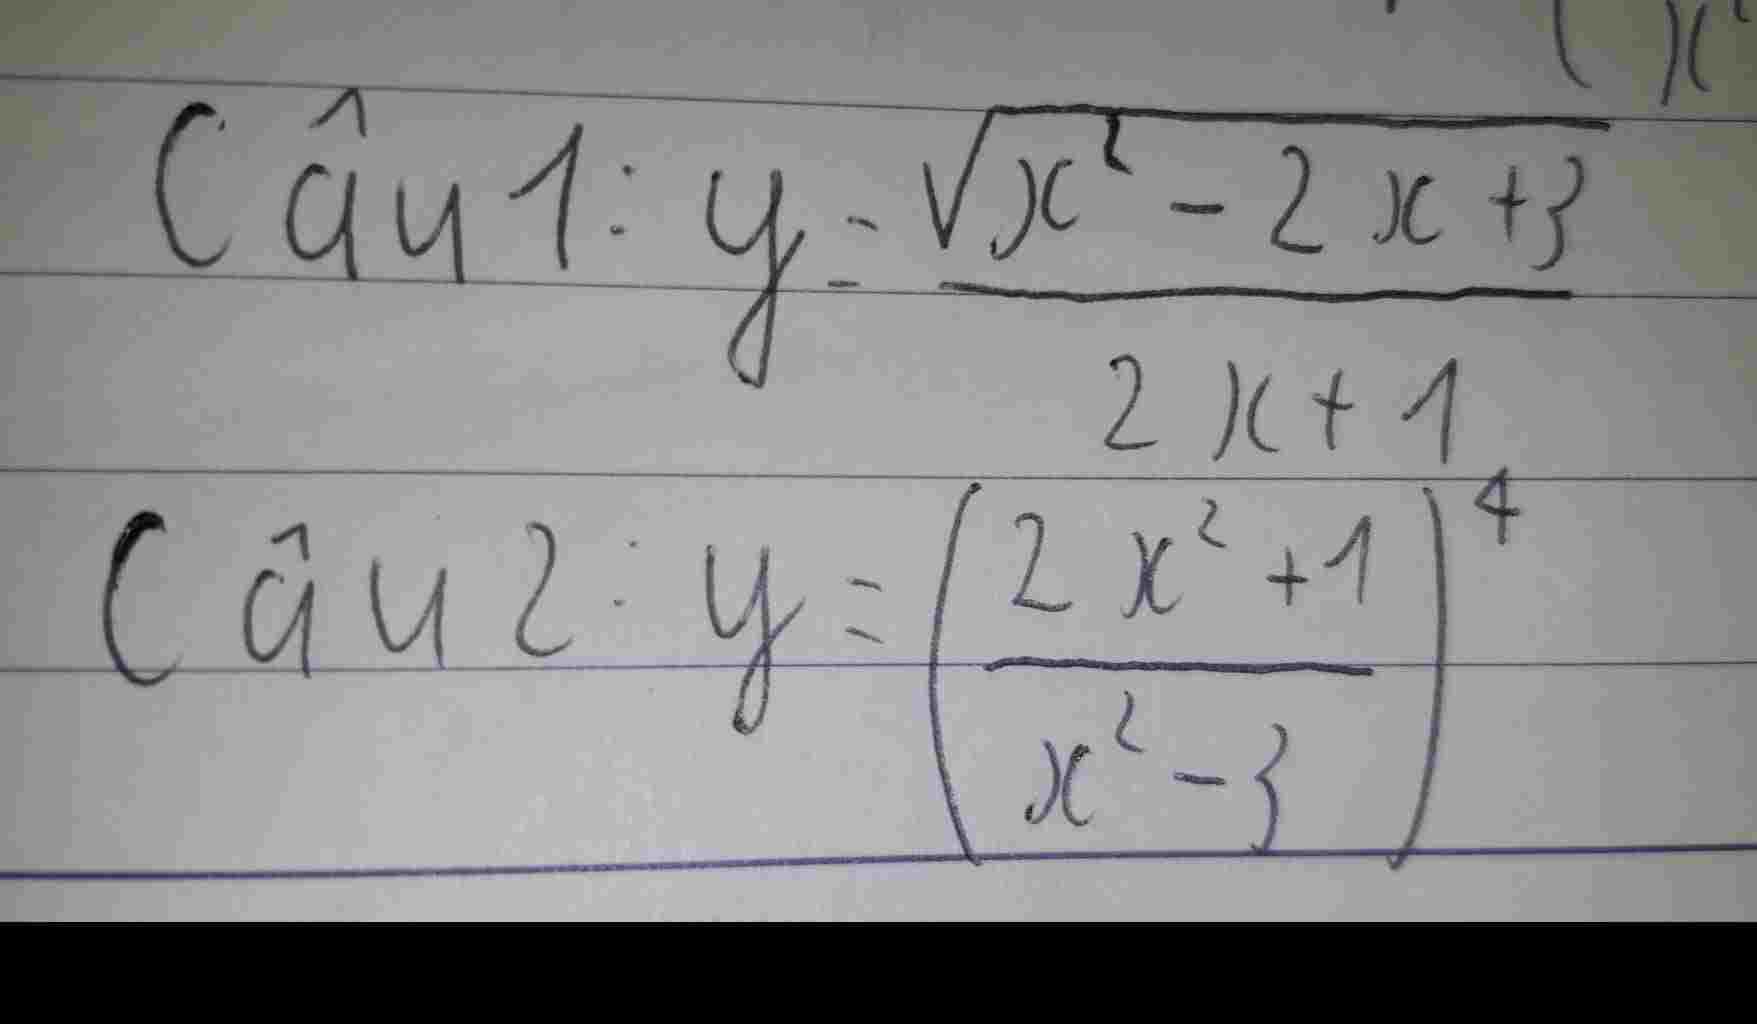 ( x²
Câu 1: y = √(x² - 2x + 3) / (2x + 1)
Câu 2: y = ((2x² + 1) / (x² - 3))⁴